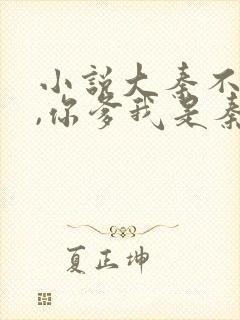 小说大秦不
,你爹我是秦
夏正坤